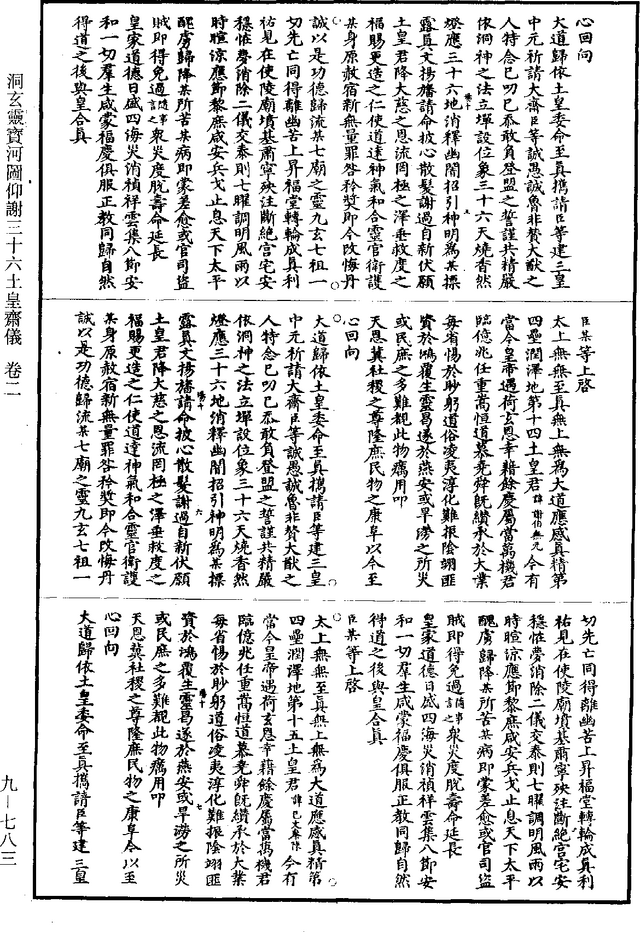 心回向
大道歸依土皇委命至真擕請臣等建三皇
中元祈請大齋臣等誠愚誠魯非贊大猷之
人特念已叨已忝敢負登盟之誓謹共精嚴
依洞神之法立壇設位象三十六天燒香然
燈應三十六地消釋幽闇招引神明為某標
露真文揚旛請命披心散髮謝過自新伏願
土皇君降大慈之恩流罔極之澤垂救度之
福賜更造之仁使道達神氣和合靈官衛護
某身原赦宿新無量罪咎矜獎即令改悔丹
誠以是功德歸流某七廟之靈九玄七祖一
切先亡同得離幽苦上昇福堂轉輪成真利
祐見在使陵廟墳墓肅寧殃注斷絕宮宅安
穩怪夢消除二儀交泰則七曜調明風雨以
時暄涼應節黎庶咸安兵戈止息天下太平
醜虜歸降某所苦某病即蒙差愈或官司盜
賊即得免過隨事言之衆災度脫壽命延長
皇家道德日盛四海災消禎祥雲集八節安
和一切羣生咸蒙福慶俱服正教同歸自然
得道之後與皇合真
臣某等上啓
太上無無至真無上無為大道應感真精第
四壘潤澤地第十四土皇君諱謝伯無元今有
當今皇帝遇荷玄恩幸藉餘慶屬當萬機君
臨億兆任重嵩恒道慕堯舜既纘承於大業
每省惕於眇躬道俗凌夷淳化難振陰翊匪
資於鴻覆生靈曷遂於燕安或旱澇之所災
或民庶之多難覩此物癘用叩
天恩冀社稷之尊隆庶民物之康阜以今至
心回向
大道歸依土皇委命至真擕請臣等建三皇
中元祈請大齋臣等誠愚誠魯非贊大猷之
人特念已叨已忝敢負登盟之誓謹共精嚴
依洞神之法立壇設位象三十六天燒香然
燈應三十六地消釋幽闇招引神明為某標
露真文揚旛請命披心散髮謝過自新伏願
土皇君降大慈之恩流罔極之澤垂救度之
福賜更造之仁使道達神氣和合靈官衛護
某身原赦宿新無量罪咎矜獎即令改悔丹
誠以是功德歸流某七廟之靈九玄七祖一
切先亡同得離幽苦上昇福堂轉輪成真利
祐見在使陵廟墳墓肅寧殃注斷絕宮宅安
穩怪夢消除二儀交泰則七曜調明風雨以
時暄涼應節黎庶咸安兵戈止息天下太平
醜虜歸降某所苦某病即蒙差愈或官司盜
賊即得免過隨事言之衆災度脫壽命延長
皇家道德日盛四海災消禎祥雲集八節安
和一切羣生咸蒙福慶俱服正教同歸自然
得道之後與皇合真
臣某等上啓
太上無無至真無上無為大道應感真精第
四壘潤澤地第十五土皇君諱今有
當今皇帝遇荷玄恩幸藉餘慶屬當萬機君
臨億兆任重嵩恒道慕堯舜既纘承於大業
每省惕於眇躬道俗凌夷淳化難振陰翊匪
資於鴻覆生靈曷遂於燕安或旱澇之所災
或民庶之多難覩此物癘用叩
天恩冀社稷之尊隆庶民物之康阜今以至
心回向
大道歸依土皇委命至真擕請臣等建三皇
洞玄靈寶河圖仰謝三十六土皇齋儀 卷二
九—七八三